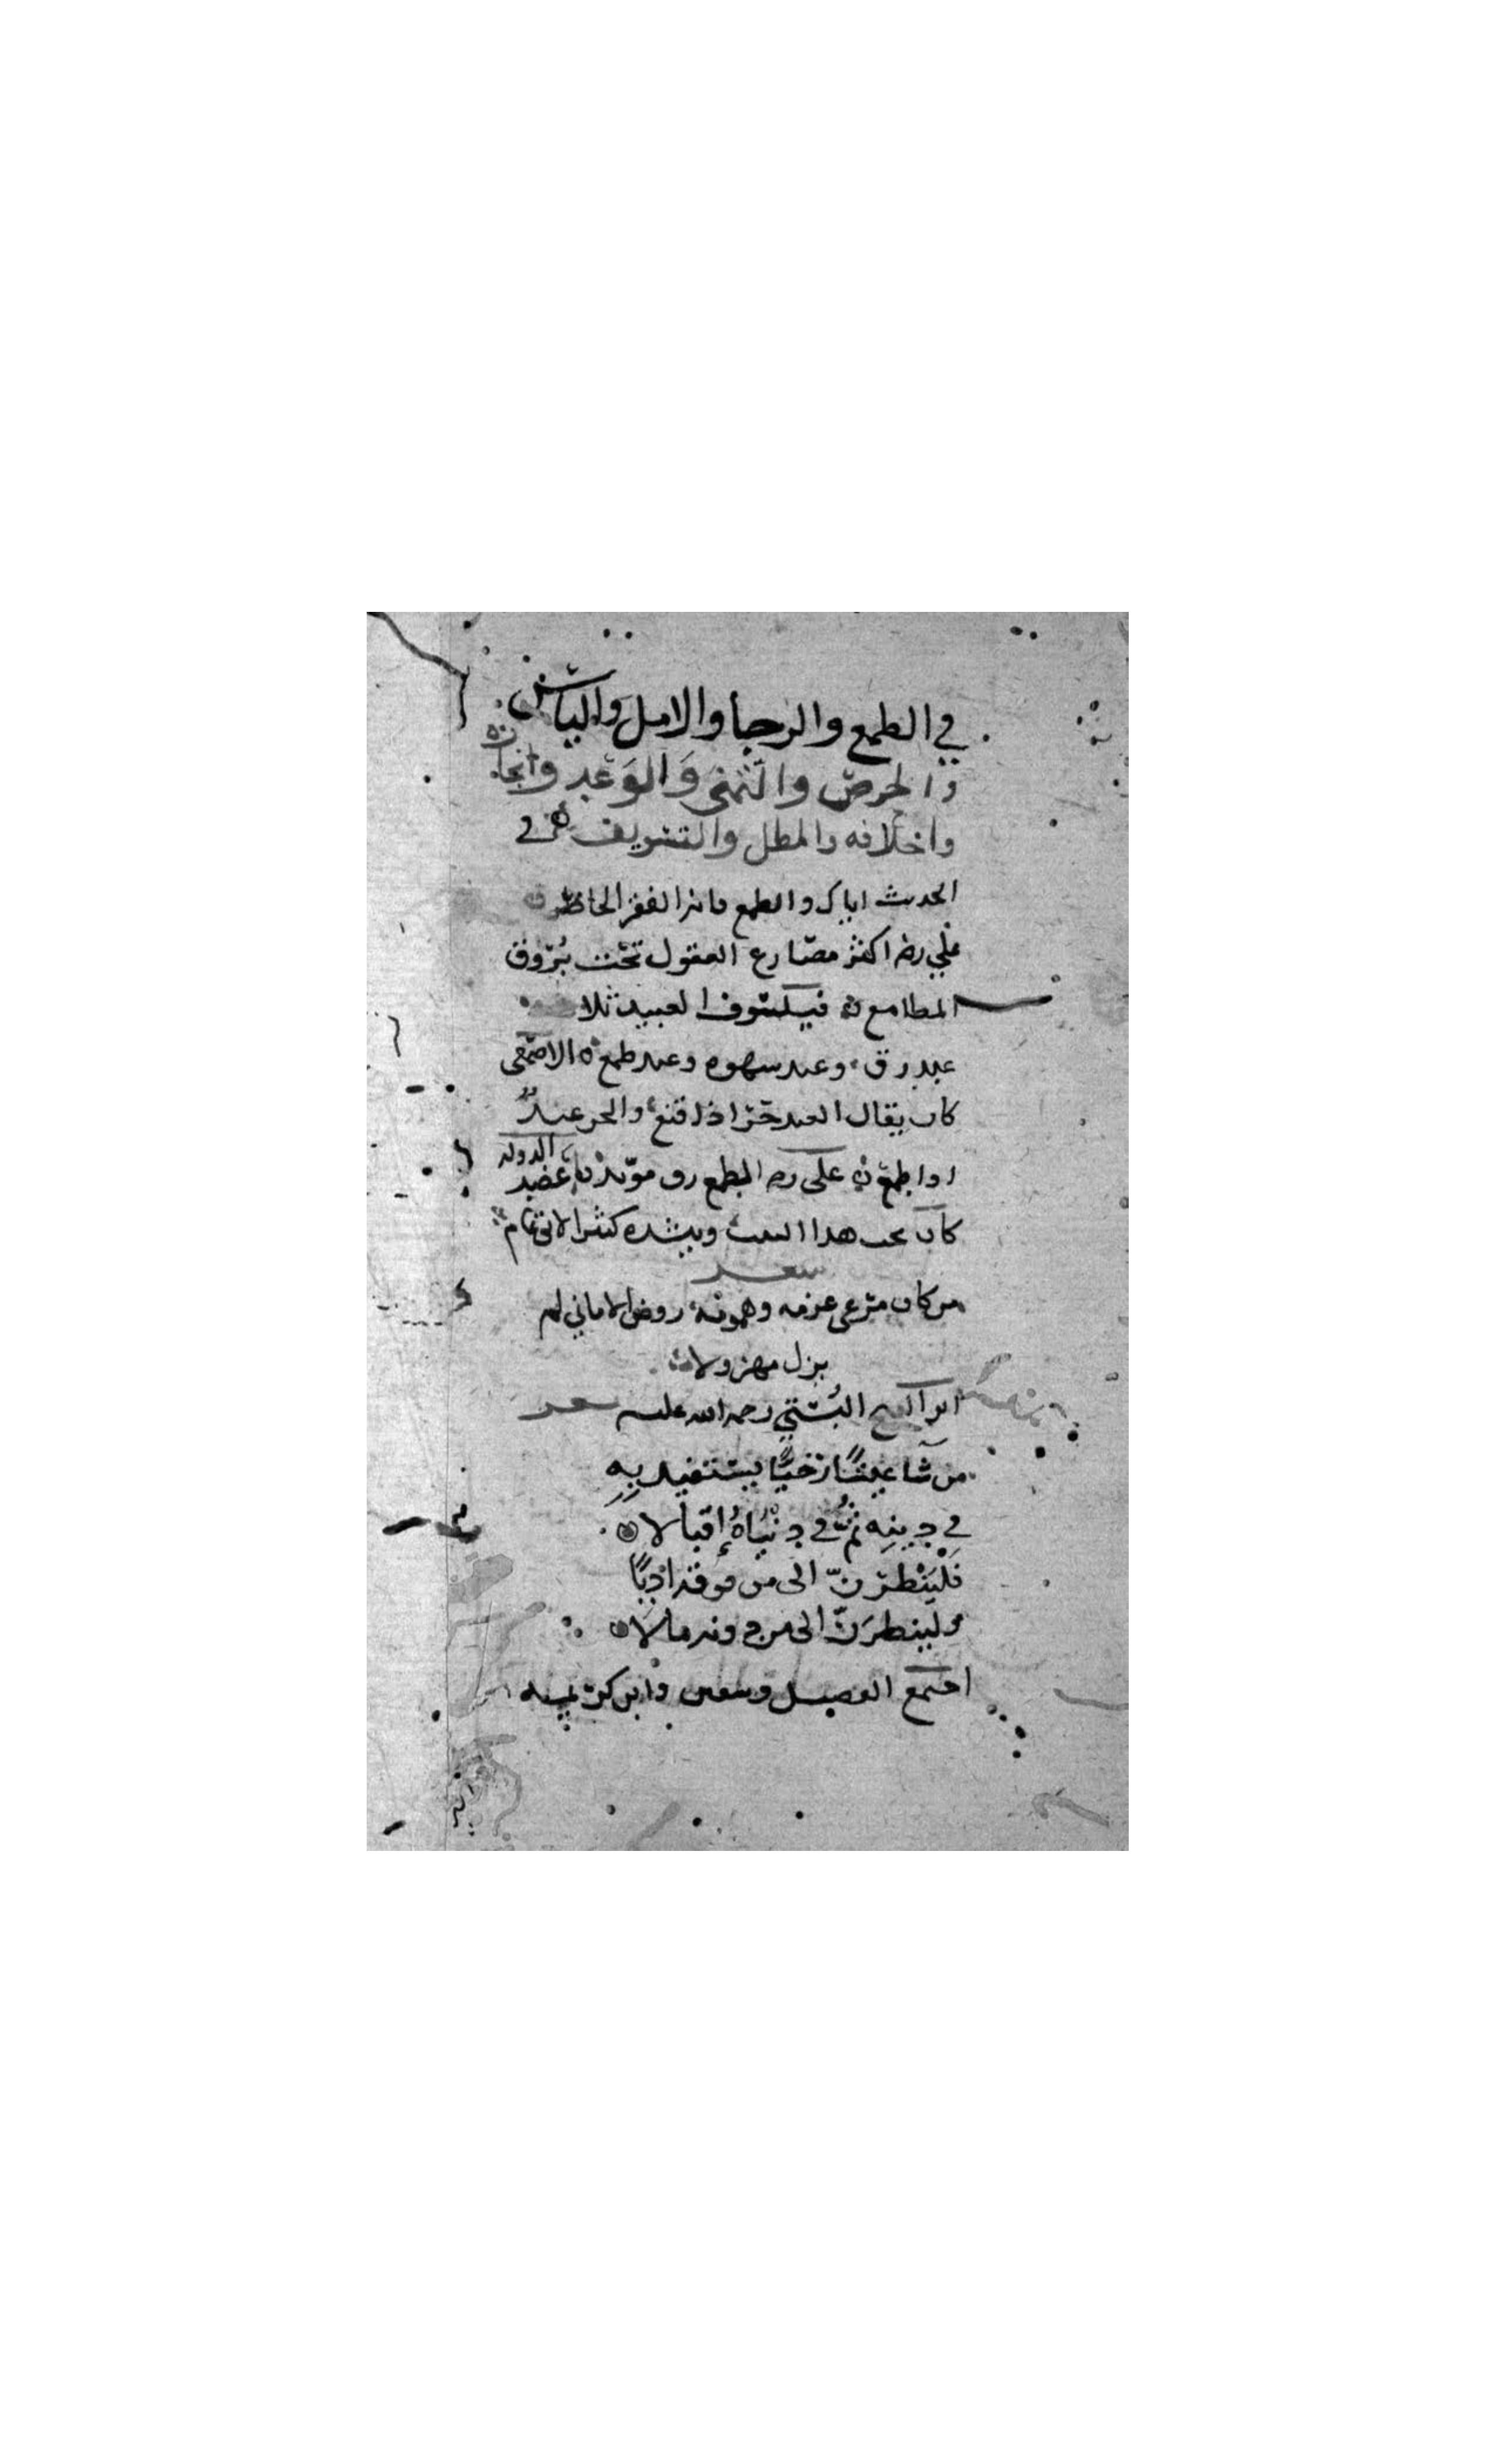 في الطمع والرجا والامل والياس
والحرص والتمني والوعد وانجازه
واخلافه والمطل والتسويف في
الحديث اياك والطمع فانه الفقر الحاضر
علي رضه اكثر مصارع العقول تحت بروق
المطامع فيلسوف العبيد ثلاثه
عبد رق وعبد شهوه وعبد طمع الاصمعي
كان يقال العبد حر اذا قنع والحر عبد
اذا طمع علي رضه الطمع رق موبد عضد الدولة
كان يحب هذا البيت وينشده كثيرا لابي تمام
شعر
من كان مرعى عزمه وهمومه روض الاماني لم
يزل مهزولا
ابو الفتح البستي رحمه الله عليه شعر
من شا عيشا رخيا يستفيد به
في دينه ثم في دنياه إقبالا
فلينظرن الى من فوقه ادبا
ولينظرن الى من دونه مالا
اجتمع الفضيل وسفين وابن كريمه